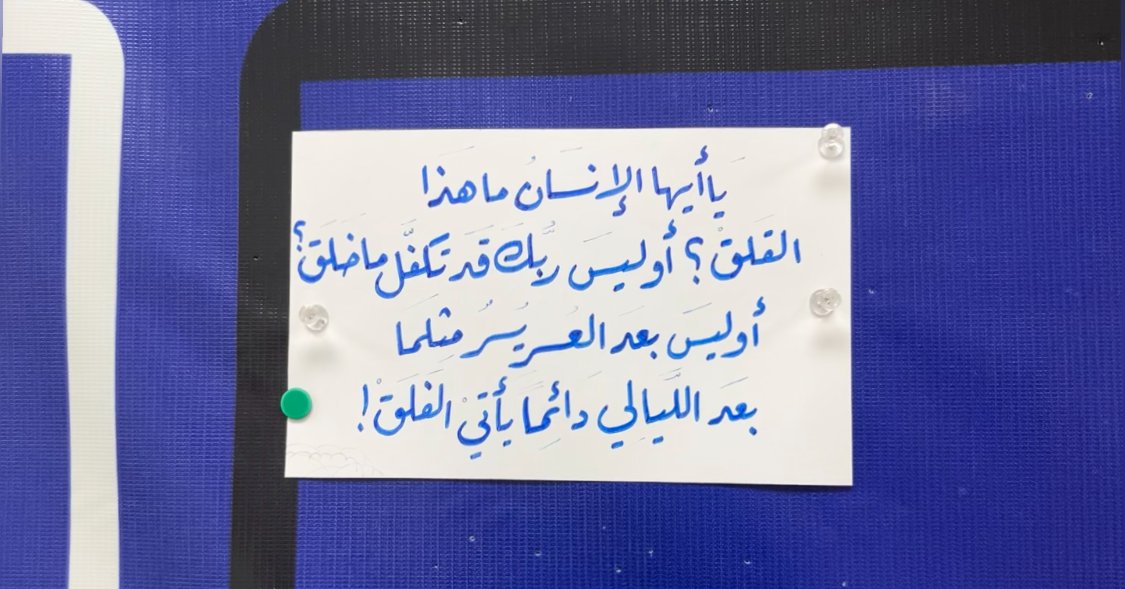 يَا أيها الإنسَانُ ما هذا
القَلقْ؟ أوليسَ ربُّكَ قَد تكفَّل ما خلَقْ؟
أوليسَ بعدَ العُسرِ يُسرٌ مثلمَا
بعَد اللَّيالي دَائمًا يأتيْ الفَلَقْ!